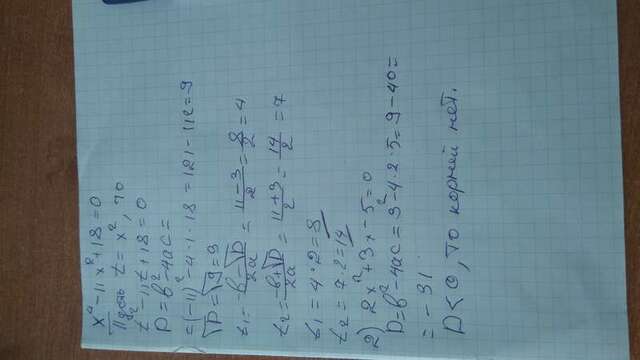 x⁴-11x²+18=0
Пусть t=x², t>0
t²-11t+18=0
D=b²-4ac=
=(-11)²-4·1·18=121-112=9
√D=√9=3
t₁=-b-√D/2a=11-3/2=8/2=4
t₂=-b+√D/2a=11+3/2=14/2=7
t₁=4·2=8
t₂=7·2=14
2) 2x²+3x-5=0
D=b²-4ac=3²-4·2·5=9-40=
=-31
D<0, то корней нет.